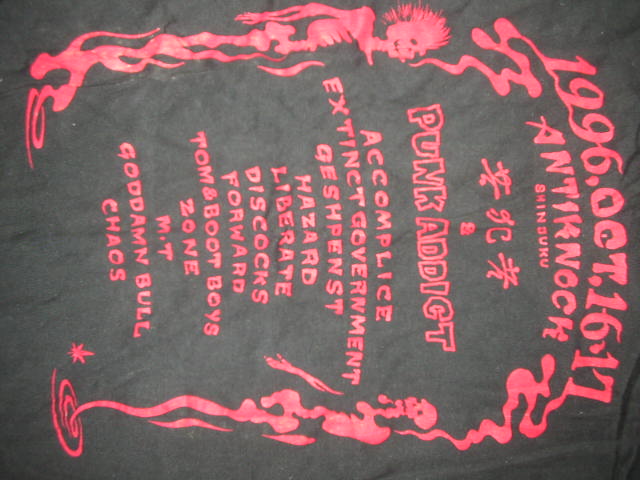 1996.OCT.16·17
ANTIKNOCK
SHINJUKU
&
PUNK ADDICT
ACCOMPLICE
EXTINCT GOVERNMENT
GESHPENST
HAZARD
LIBERATE
DISCOCKS
FORWARD
TOM&BOOT BOYS
ZONE
M.T
GODDAMN BULL
CHAOS